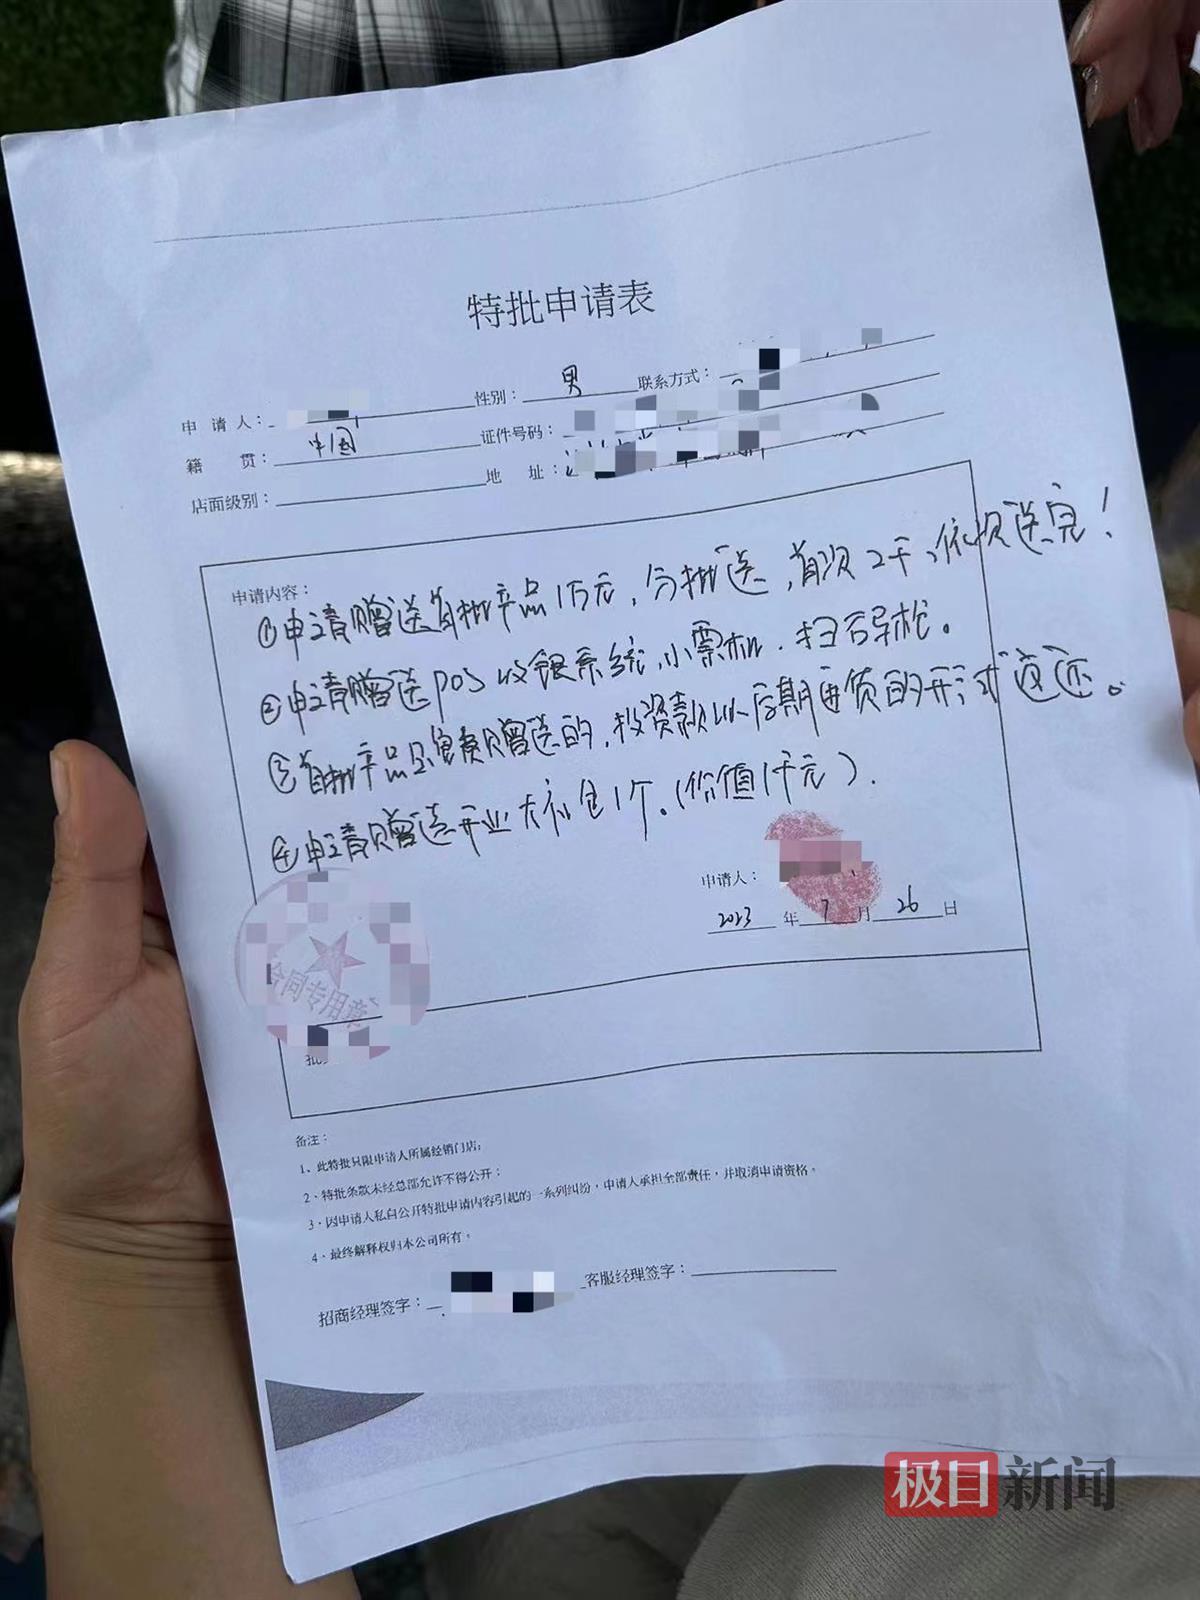 特批申请表
申 请 人: 性别: 男 联系方式:
籍 贯: 中国 证件号码:
店面级别: 地 址:
申请内容:
①申请赠送首批产品1万元,分批送,首次2千,依次送完!
②申请赠送POS收银系统,小票机.扫
③首批产品是免费赠送的,投资款以后期进货的形式返还。
④申请赠送开业大礼包1个。(价值1千元).
申请人:
2023 年 7 月 26 日
合同专用章
批
备注:
1、此特批只限申请人所属经销门店;
2、特批条款未经总部允许不得公开;
3、因申请人私自公开特批申请内容引起的一系列纠纷,申请人承担全部责任,并取消申请资格。
4、最终解释权归本公司所有。
招商经理签字: 客服经理签字:
极目新闻